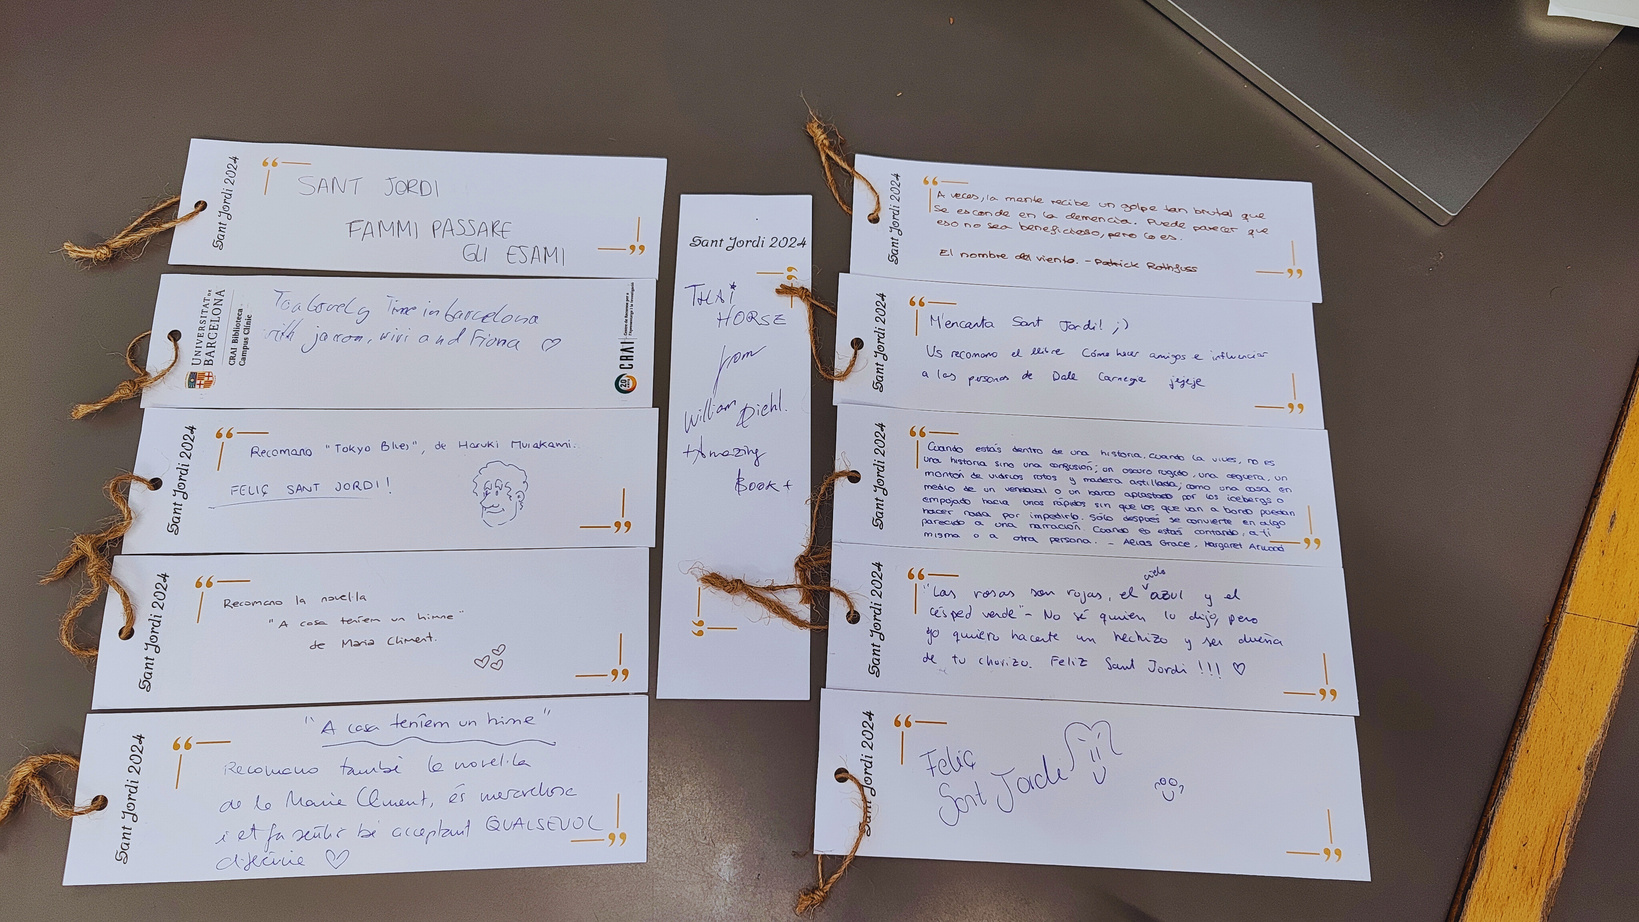 Sant Jordi 2024
SANT JORDI
FAMMI PASSARE
GLI ESAMI
UNIVERSITAT DE
BARCELONA
CRAI Biblioteca
Campus Clínic
To a lovely Time in barcelona
with jarron, vivi and Fiona ♡
20
CRAI
Centre de Recursos per a
l'Aprenentatge i la Investigació
Sant Jordi 2024
Recomano "Tokyo Blues", de Haruki Murakami.
FELIÇ SANT JORDI!
Sant Jordi 2024
Recomano la novel·la
"A casa teníem un himne"
de Maria Climent.
Sant Jordi 2024
"A casa teníem un himne"
Recomano també la novel·la
de la Maria Climent, és meravellosa
i et fa sentir bé acceptant QUALSEVOL
♡
Sant Jordi 2024
THAI
HORSE
from
William Diehl.
Amazing
Book +
Sant Jordi 2024
A veces, la mente recibe un golpe tan brutal que
se esconde en la demencia. Puede parecer que
eso no sea beneficioso, pero lo es.
El nombre del viento. - Patrick Rothfuss
Sant Jordi 2024
M'encanta Sant Jordi! ;)
Us recomano el llibre Cómo hacer amigos e influenciar
a las personas de Dale Carnegie jejeje
Sant Jordi 2024
Cuando estás dentro de una historia, cuando la vives, no es
una historia sino una confusión; un oscuro rugido, una ceguera, un
montón de vidrios rotos y madera astillada; como una casa en
medio de un vendaval o un barco aplastado por los icebergs o
empujado hacia unos rápidos sin que los que van a bordo puedan
hacer nada por impedirlo. Sólo después se convierte en algo
parecido a una narración. Cuando lo estás contando, a ti
misma o a otra persona. - Alias Grace, Margaret Atwood
Sant Jordi 2024
"Las rosas son rojas, el cielo azul y el
césped verde" - No sé quien lo dijo, pero
yo quiero hacerte un hechizo y ser dueña
de tu chorizo. Feliz Sant Jordi !!! ♡
Sant Jordi 2024
Feliç
Sant Jordi